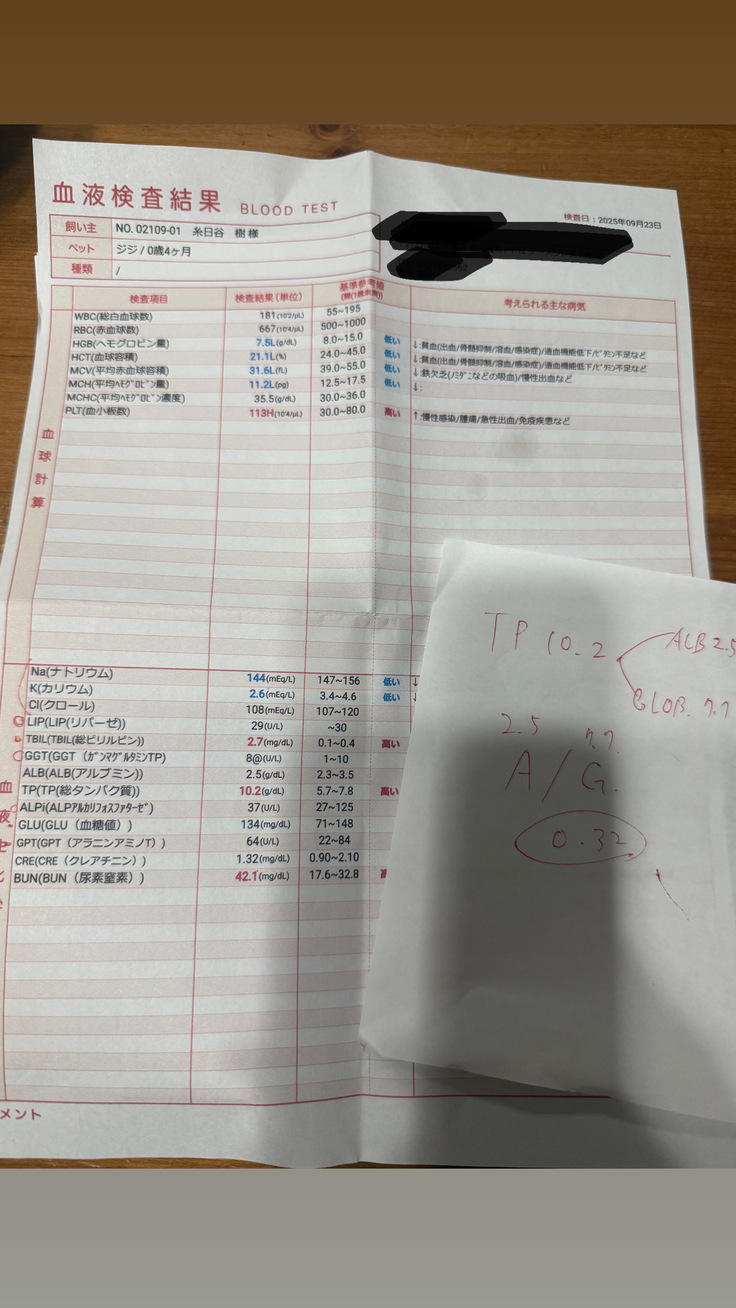 血液検査結果 BLOOD TEST
検査日：2025年09月23日
飼い主 NO. 02109-01 糸日谷 樹 様
ペット ジジ / 0歳4ヶ月
種類 /
検査項目 検査結果（単位） 基準参考値 考えられる主な病気
WBC(総白血球数) 181(10²/μL) 55~195
RBC(赤血球数) 667(10⁴/μL) 500~1000
HGB(ヘモグロビン量) 7.5L(g/dL) 8.0~15.0 低い ↓:貧血(出血/骨髄抑制/溶血/感染症)/造血機能低下/ビタミン不足など
HCT(血球容積) 21.1L(%) 24.0~45.0 低い ↓:貧血(出血/骨髄抑制/溶血/感染症)/造血機能低下/ビタミン不足など
MCV(平均赤血球容積) 31.6L(fL) 39.0~55.0 低い ↓:鉄欠乏(ノミダニなどの吸血)/慢性出血など
MCH(平均ヘモグロビン量) 11.2L(pg) 12.5~17.5 低い ↓:
MCHC(平均ヘモグロビン濃度) 35.5(g/dL) 30.0~36.0
PLT(血小板数) 113H(10⁴/μL) 30.0~80.0 高い ↑:慢性感染/腫瘍/急性出血/免疫疾患など
血球計算
Na(ナトリウム) 144(mEq/L) 147~156 低い ↓
K(カリウム) 2.6(mEq/L) 3.4~4.6 低い ↓
Cl(クロール) 108(mEq/L) 107~120
LIP(LIP(リパーゼ)) 29(U/L) ~30
TBIL(TBIL(総ビリルビン)) 2.7(mg/dL) 0.1~0.4 高い
GGT(GGT（ガンマグルタミンTP) 8@(U/L) 1~10
ALB(ALB(アルブミン)) 2.5(g/dL) 2.3~3.5
TP(TP(総タンパク質)) 10.2(g/dL) 5.7~7.8 高い
ALPi(ALPアルカリフォスファターゼ) 37(U/L) 27~125
GLU(GLU（血糖値）) 134(mg/dL) 71~148
GPT(GPT（アラニンアミノT）) 64(U/L) 22~84
CRE(CRE（クレアチニン）) 1.32(mg/dL) 0.90~2.10
BUN(BUN（尿素窒素）) 42.1(mg/dL) 17.6~32.8
メント
TP 10.2 ALB 2.5
GLOB. 7.7
2.5 7.7.
A/G.
0.32